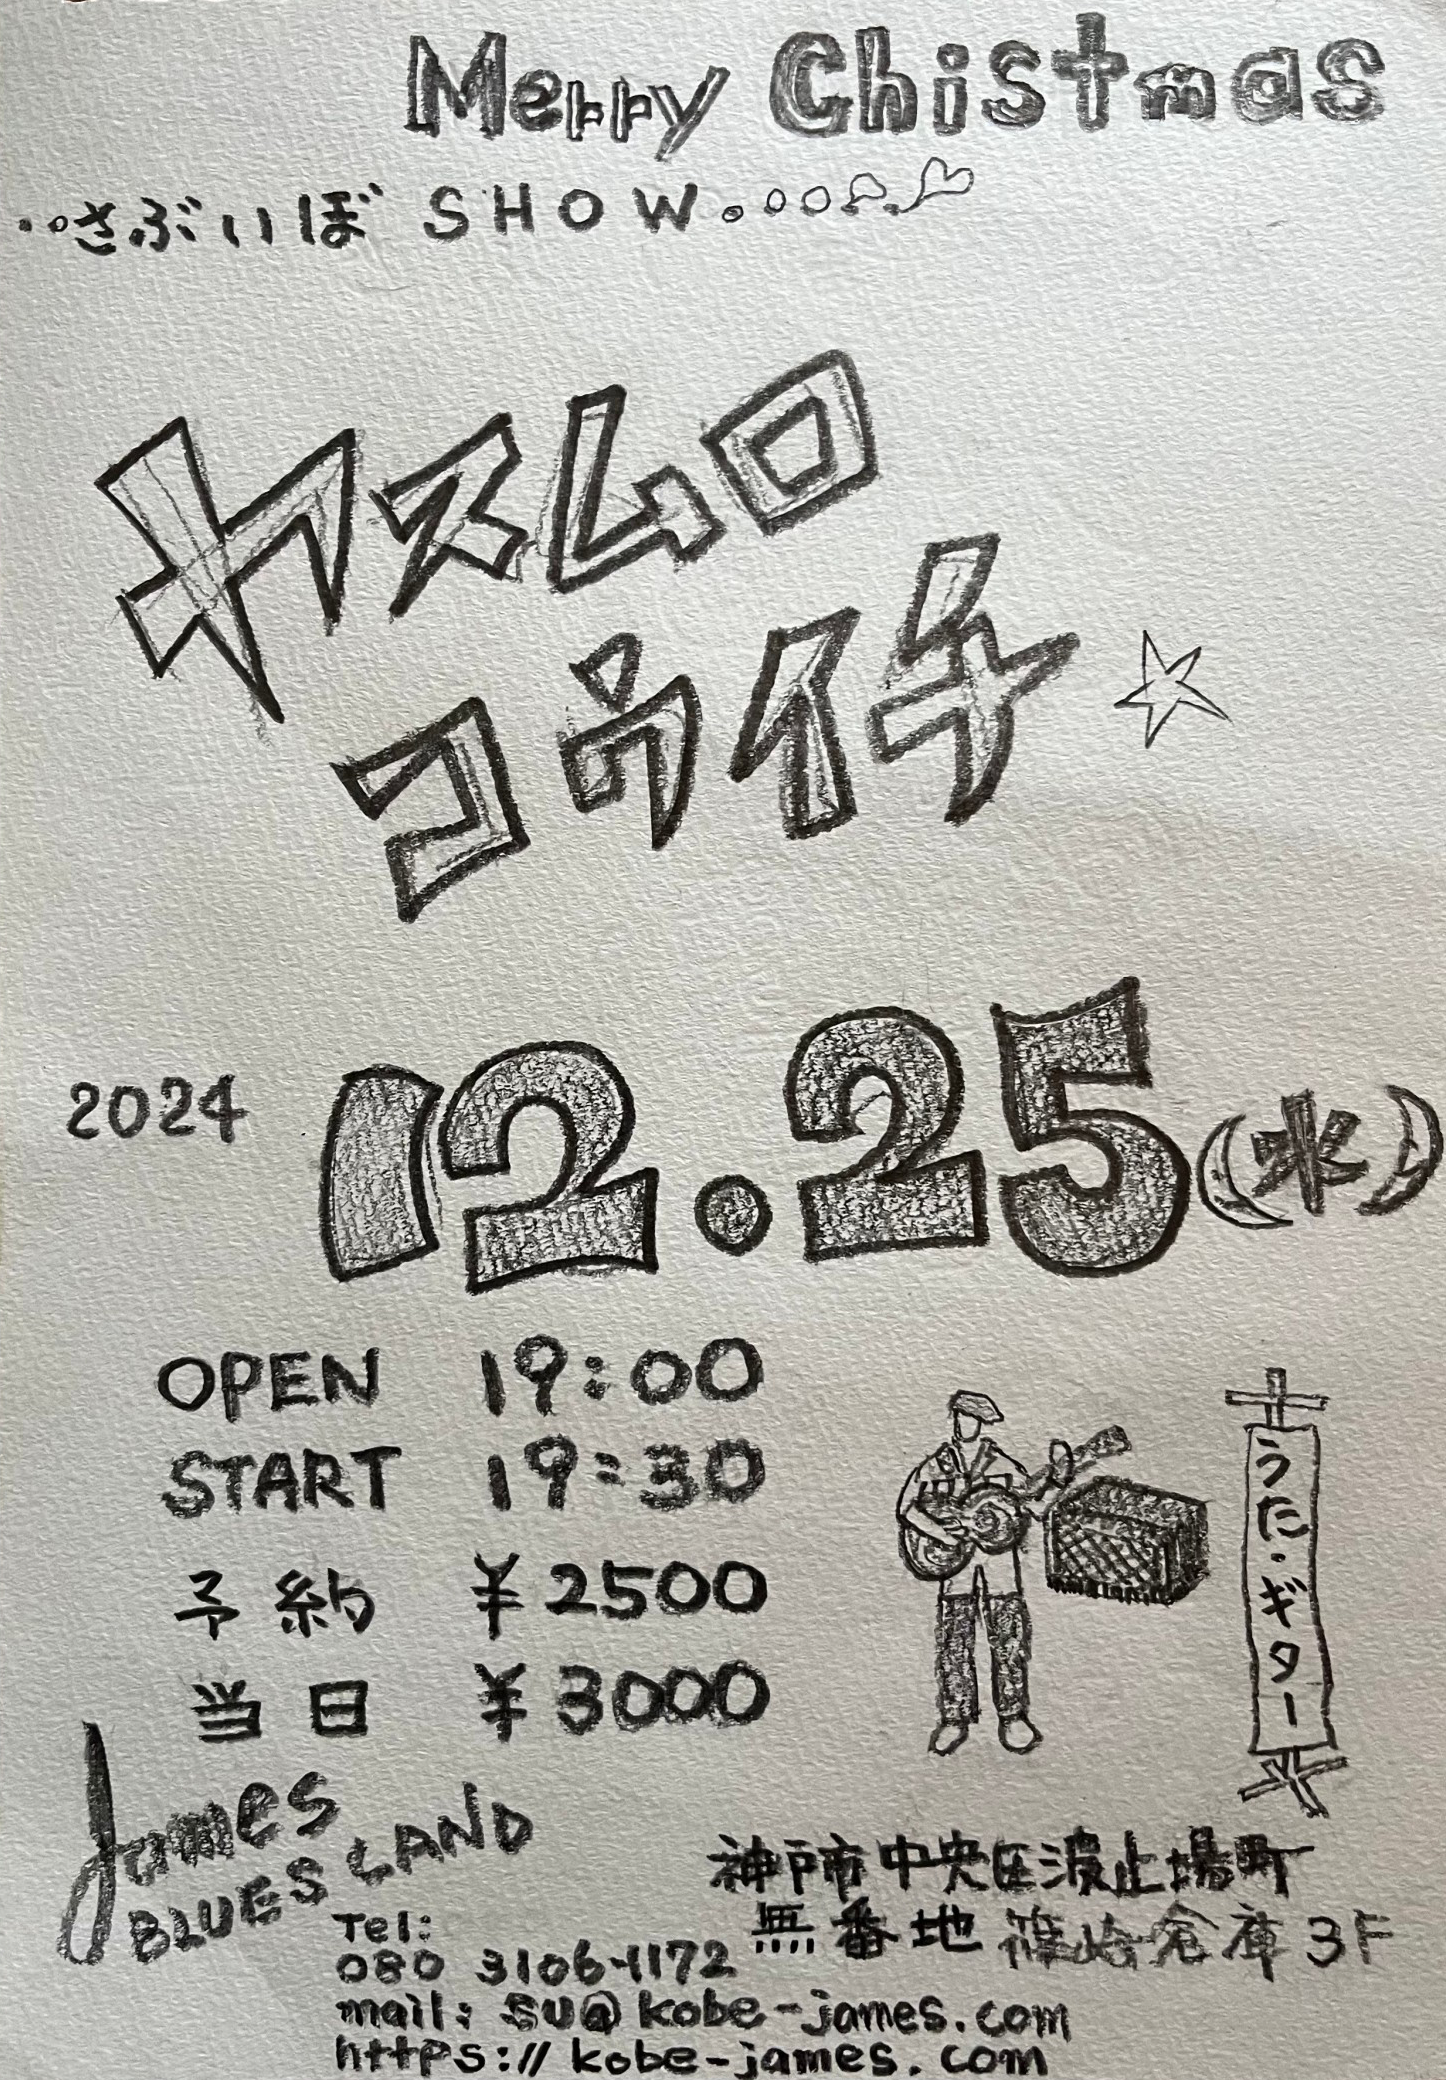 Merry Chistmas
・・さぶいぼ SHOW・
ヤスムロ
コウイチ
2024 12.25(水)
OPEN 19:00
START 19:30
予約 ¥2500
当日 ¥3000
うた・ギター
James
BLUES LAND
神戸市中央区波止場町
無番地 篠崎倉庫3F
Tel:
080 3106-1172
mail: su@kobe-james.com
https://kobe-james.com